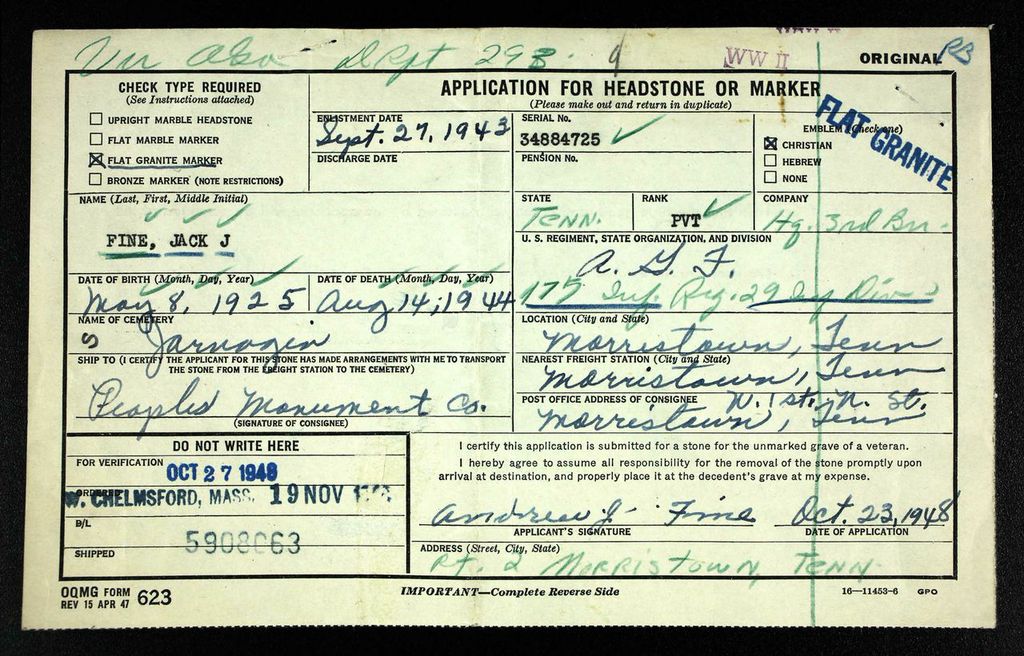 Dept 293. 9 WW II ORIGINAL RB
CHECK TYPE REQUIRED
(See Instructions attached)
UPRIGHT MARBLE HEADSTONE
FLAT MARBLE MARKER
FLAT GRANITE MARKER
BRONZE MARKER (NOTE RESTRICTIONS)
APPLICATION FOR HEADSTONE OR MARKER
(Please make out and return in duplicate)
ENLISTMENT DATE
Sept. 27, 1943
DISCHARGE DATE
SERIAL No.
34884725
PENSION No.
EMBLEM (Check one)
CHRISTIAN
HEBREW
NONE
FLAT GRANITE
NAME (Last, First, Middle Initial)
FINE, JACK J
STATE
TENN.
RANK
PVT
COMPANY
Hq. 3rd Bn.
U. S. REGIMENT, STATE ORGANIZATION, AND DIVISION
A. G. F.
175 Inf. Reg. 29 Inf Div.
DATE OF BIRTH (Month, Day, Year)
May 8, 1925
DATE OF DEATH (Month, Day, Year)
Aug 14, 1944
NAME OF CEMETERY
Jarnagin
LOCATION (City and State)
Morristown, Tenn
SHIP TO (I CERTIFY THE APPLICANT FOR THIS STONE HAS MADE ARRANGEMENTS WITH ME TO TRANSPORT
THE STONE FROM THE FREIGHT STATION TO THE CEMETERY)
Peoples Monument Co.
(SIGNATURE OF CONSIGNEE)
NEAREST FREIGHT STATION (City and State)
Morristown, Tenn
POST OFFICE ADDRESS OF CONSIGNEE
W. 1st. N. St.
Morristown, Tenn
DO NOT WRITE HERE
FOR VERIFICATION
OCT 27 1948
ORDERED
W. CHELMSFORD, MASS. 19 NOV
B/L
5908063
SHIPPED
I certify this application is submitted for a stone for the unmarked grave of a veteran.
I hereby agree to assume all responsibility for the removal of the stone promptly upon
arrival at destination, and properly place it at the decedent's grave at my expense.
Andrew J. Fine Oct. 23, 1948
APPLICANT'S SIGNATURE DATE OF APPLICATION
ADDRESS (Street, City, State)
Rt. 2 Morristown, Tenn.
OQMG FORM
REV 15 APR 47 623
IMPORTANT—Complete Reverse Side
16—11453-6 GPO